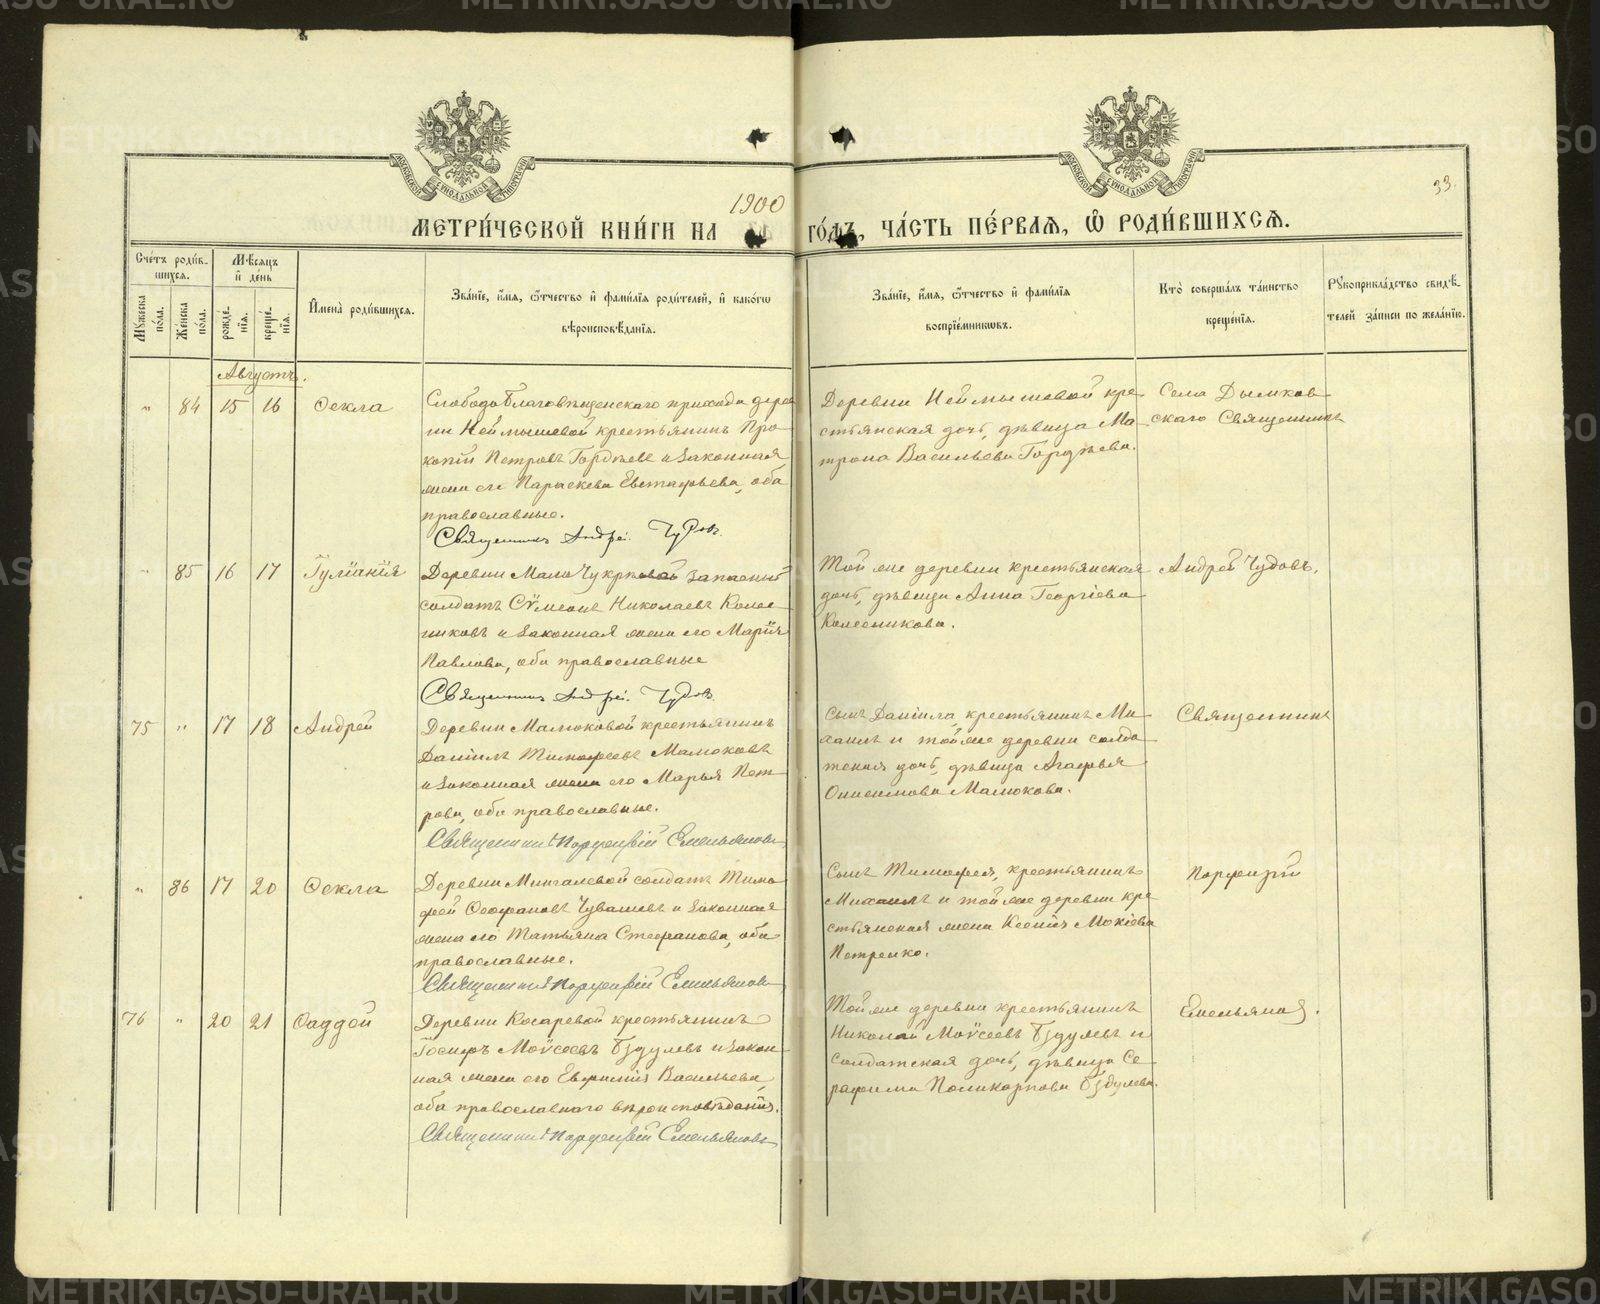 METRIKI.GASO-URAL.RU
МОСКОВСКОЙ СѴНОДАЛЬНОЙ ТИПОГРАФІИ
МОСКОВСКОЙ СѴНОДАЛЬНОЙ ТИПОГРАФІИ
33.
1900
МЕТРИ́ЧЕСКОЙ КНИ́ГИ НА
ГО́ДЪ, ЧА́СТЬ ПЕ́РВАЯ, Ѡ҆ РОДИ́ВШИХСЯ.
Сче́тъ роди́в-
шихся.
Мѣсяцъ
и҆ де́нь
Мꙋжеска по́ла.
Же́нска по́ла.
рожде́-
нїя.
креще́-
нїя.
И҆мена̀ роди́вшихся.
Зва́нїе, и҆́мя, ѻ҆́тчество и҆ фами́лїя роди́телей, и҆ како́гѡ
вѣроисповѣ́данїя.
Зва́нїе, и҆́мя, ѻ҆́тчество и҆ фами́лїя
воспрїе́мникѡвъ.
Кто̀ соверша́лъ та́инство
креще́нїя.
Рꙋкоприкла́дство свидѣ́-
телей за́писи по жела́нїю.
Августъ.
" 84 15 16 Ѳекла
Слободо-Благовѣщенскаго прихода дерев
ни Неймышевой крестьянинъ Про-
копій Петровъ Гордѣевъ и законная
жена его Параскева Евстафьева, оба
православные.
Священникъ Андрей Чудов
Деревни Неймышевой кре-
стьянская дочь, дѣвица Ма-
трона Васильева Гордѣева.
Села Дымков-
скаго Священникъ
" 85 16 17 Іуліанія
Деревни Мало- запасный
солдатъ Сѵмеонъ Николаевъ Колес-
никовъ и законная жена его Марія
Павлова, оба православные
Священник Андрей Чудов
Той же деревни крестьянская
дочь, дѣвица Анна Георгіева
Колесникова.
Андрей Чудовъ.
75 " 17 18 Андрей
Деревни Малюковой крестьянинъ
Даніилъ Тимофеевъ Малюковъ
и законная жена его Марья Пет-
рова, оба православные.
Священникъ Порфирій Емельяновъ
Сынъ Даніила, крестьянинъ Ми-
хаилъ и той же деревни солда-
тская дочь, дѣвица Агафья
Онисимова Малюкова.
Священникъ
" 86 17 20 Ѳекла
Деревни Мингалевой солдатъ Тимо-
фей Ѳеофановъ Чувашевъ и законная
жена его Татьяна Стефанова, оба
православные.
Священникъ Порфирій Емельянов
Сынъ Тимофея, крестьянинъ
Михаилъ и той же деревни кре-
стьянская жена Ксенія Мокіева
Петренко.
Порфирій
76 " 20 21 Ѳаддей
Деревни Косаревой крестьянинъ
Іосифъ Моѵсеевъ Бздулевъ и закон-
ная жена его Евфимія Васильева,
оба православнаго вѣроисповѣданія.
Священникъ Порфирій Емельяновъ
Той же деревни крестьянинъ
Николай Моѵсеевъ Бздулевъ и
солдатская дочь, дѣвица Се-
рафима Поликарпова Бздулева.
Емельянов.